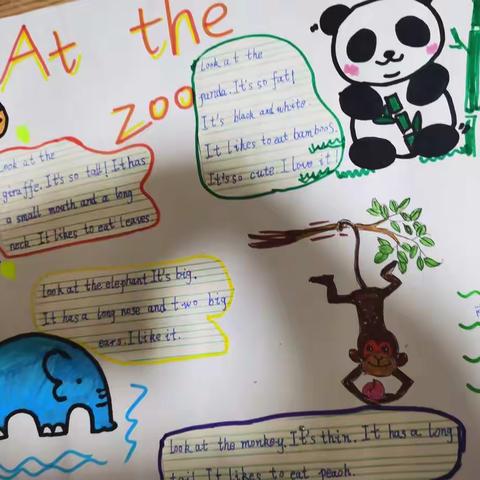 At the
zoo
Look at the
panda. It's so fat!
It's black and white.
It likes to eat bamboos.
It's so cute. I love it!
Look at the
giraffe. It's so tall! It has
a small mouth and a long
neck. It likes to eat leaves.
Look at the elephant. It's big.
It has a long nose and two big
ears. I like it.
Look at the monkey. It's thin. It has a long
tail. It likes to eat peach.